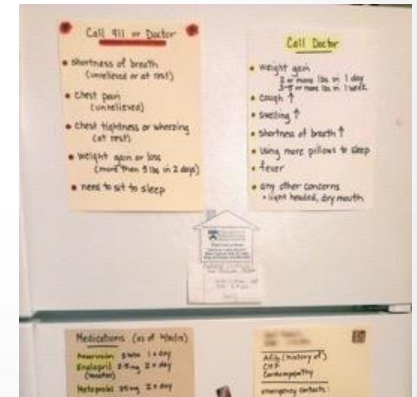 Call 911 or Doctor
• shortness of breath
(unrelieved or at rest)
• chest pain
(unrelieved)
• chest tightness or wheezing
(at rest)
• weight gain or loss
(more than 5 lbs in 2 days)
• need to sit to sleep
Call Doctor
• weight gain
or more lbs in 1 day
3-5 or more lbs in 1 week
• cough ↑
• swelling ↑
• shortness of breath ↑
• using more pillows to sleep
• fever
• any other concerns
• light headed, dry mouth
Medications (as of
1 x day
Enalapril 2.5mg 2 x day
(Vasotec)
Metoprolol 25mg 2 x day
Afib (history of)
CHF
Cardiomyopathy
emergency contacts: